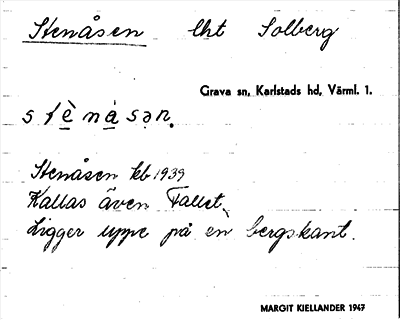 Stenåsen lht Solberg
Grava sn, Karlstads hd, Värml. 1.
stè̱nà̱sən.
Stenåsen kb 1939
Kallas även Fallet.
Ligger uppe på en bergskant.
MARGIT KIELLANDER 1947